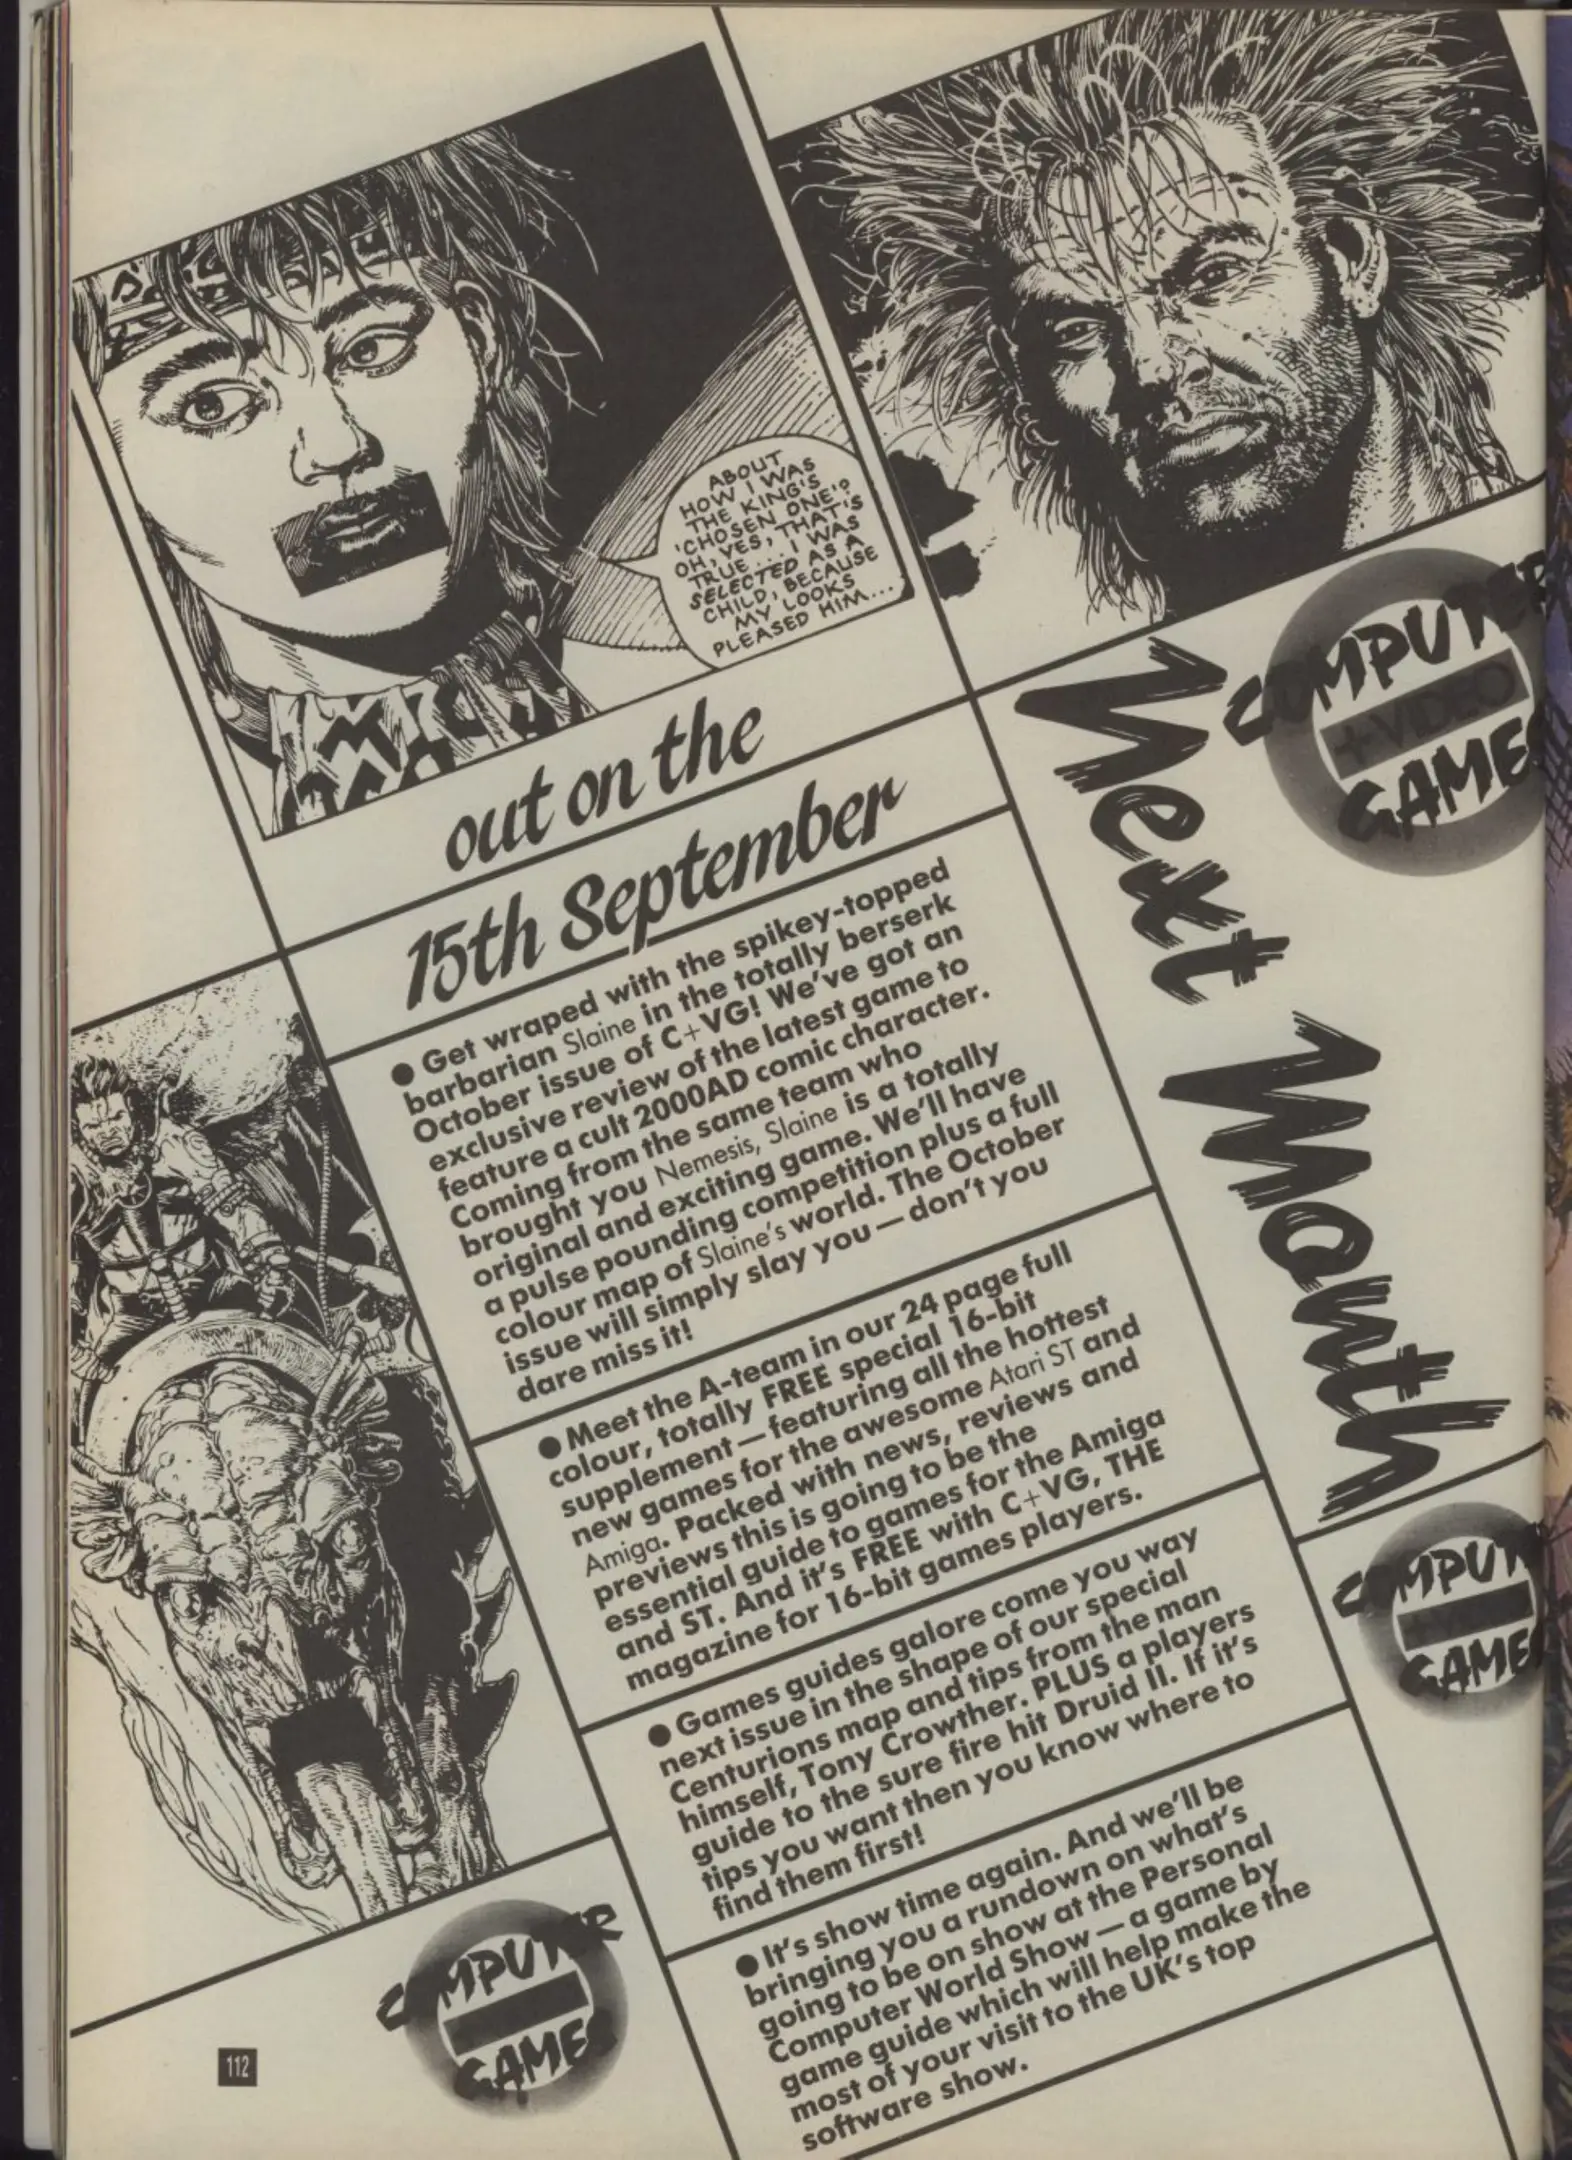 ABOUT
HOW I WAS
THE KING'S
'CHOSEN ONE'?
OH, YES, THAT'S
TRUE... I WAS
SELECTED AS A
CHILD, BECAUSE
MY LOOKS
PLEASED HIM...
COMPUTER
+VIDEO
GAMES
Next Month
out on the
15th September
● Get wraped with the spikey-topped
barbarian Slaine in the totally berserk
October issue of C+VG! We've got an
exclusive review of the latest game to
feature a cult 2000AD comic character.
Coming from the same team who
brought you Nemesis, Slaine is a totally
original and exciting game. We'll have
a pulse pounding competition plus a full
colour map of Slaine's world. The October
issue will simply slay you — don't you
dare miss it!
● Meet the A-team in our 24 page full
colour, totally FREE special 16-bit
supplement — featuring all the hottest
new games for the awesome Atari ST and
Amiga. Packed with news, reviews and
previews this is going to be the
essential guide to games for the Amiga
and ST. And it's FREE with C+VG, THE
magazine for 16-bit games players.
● Games guides galore come you way
next issue in the shape of our special
Centurions map and tips from the man
himself, Tony Crowther. PLUS a players
guide to the sure fire hit Druid II. If it's
tips you want then you know where to
find them first!
● It's show time again. And we'll be
bringing you a rundown on what's
going to be on show at the Personal
Computer World Show — a game by
game guide which will help make the
most of your visit to the UK's top
software show.
COMPUT
GAME
COMPUTER
GAMES
112